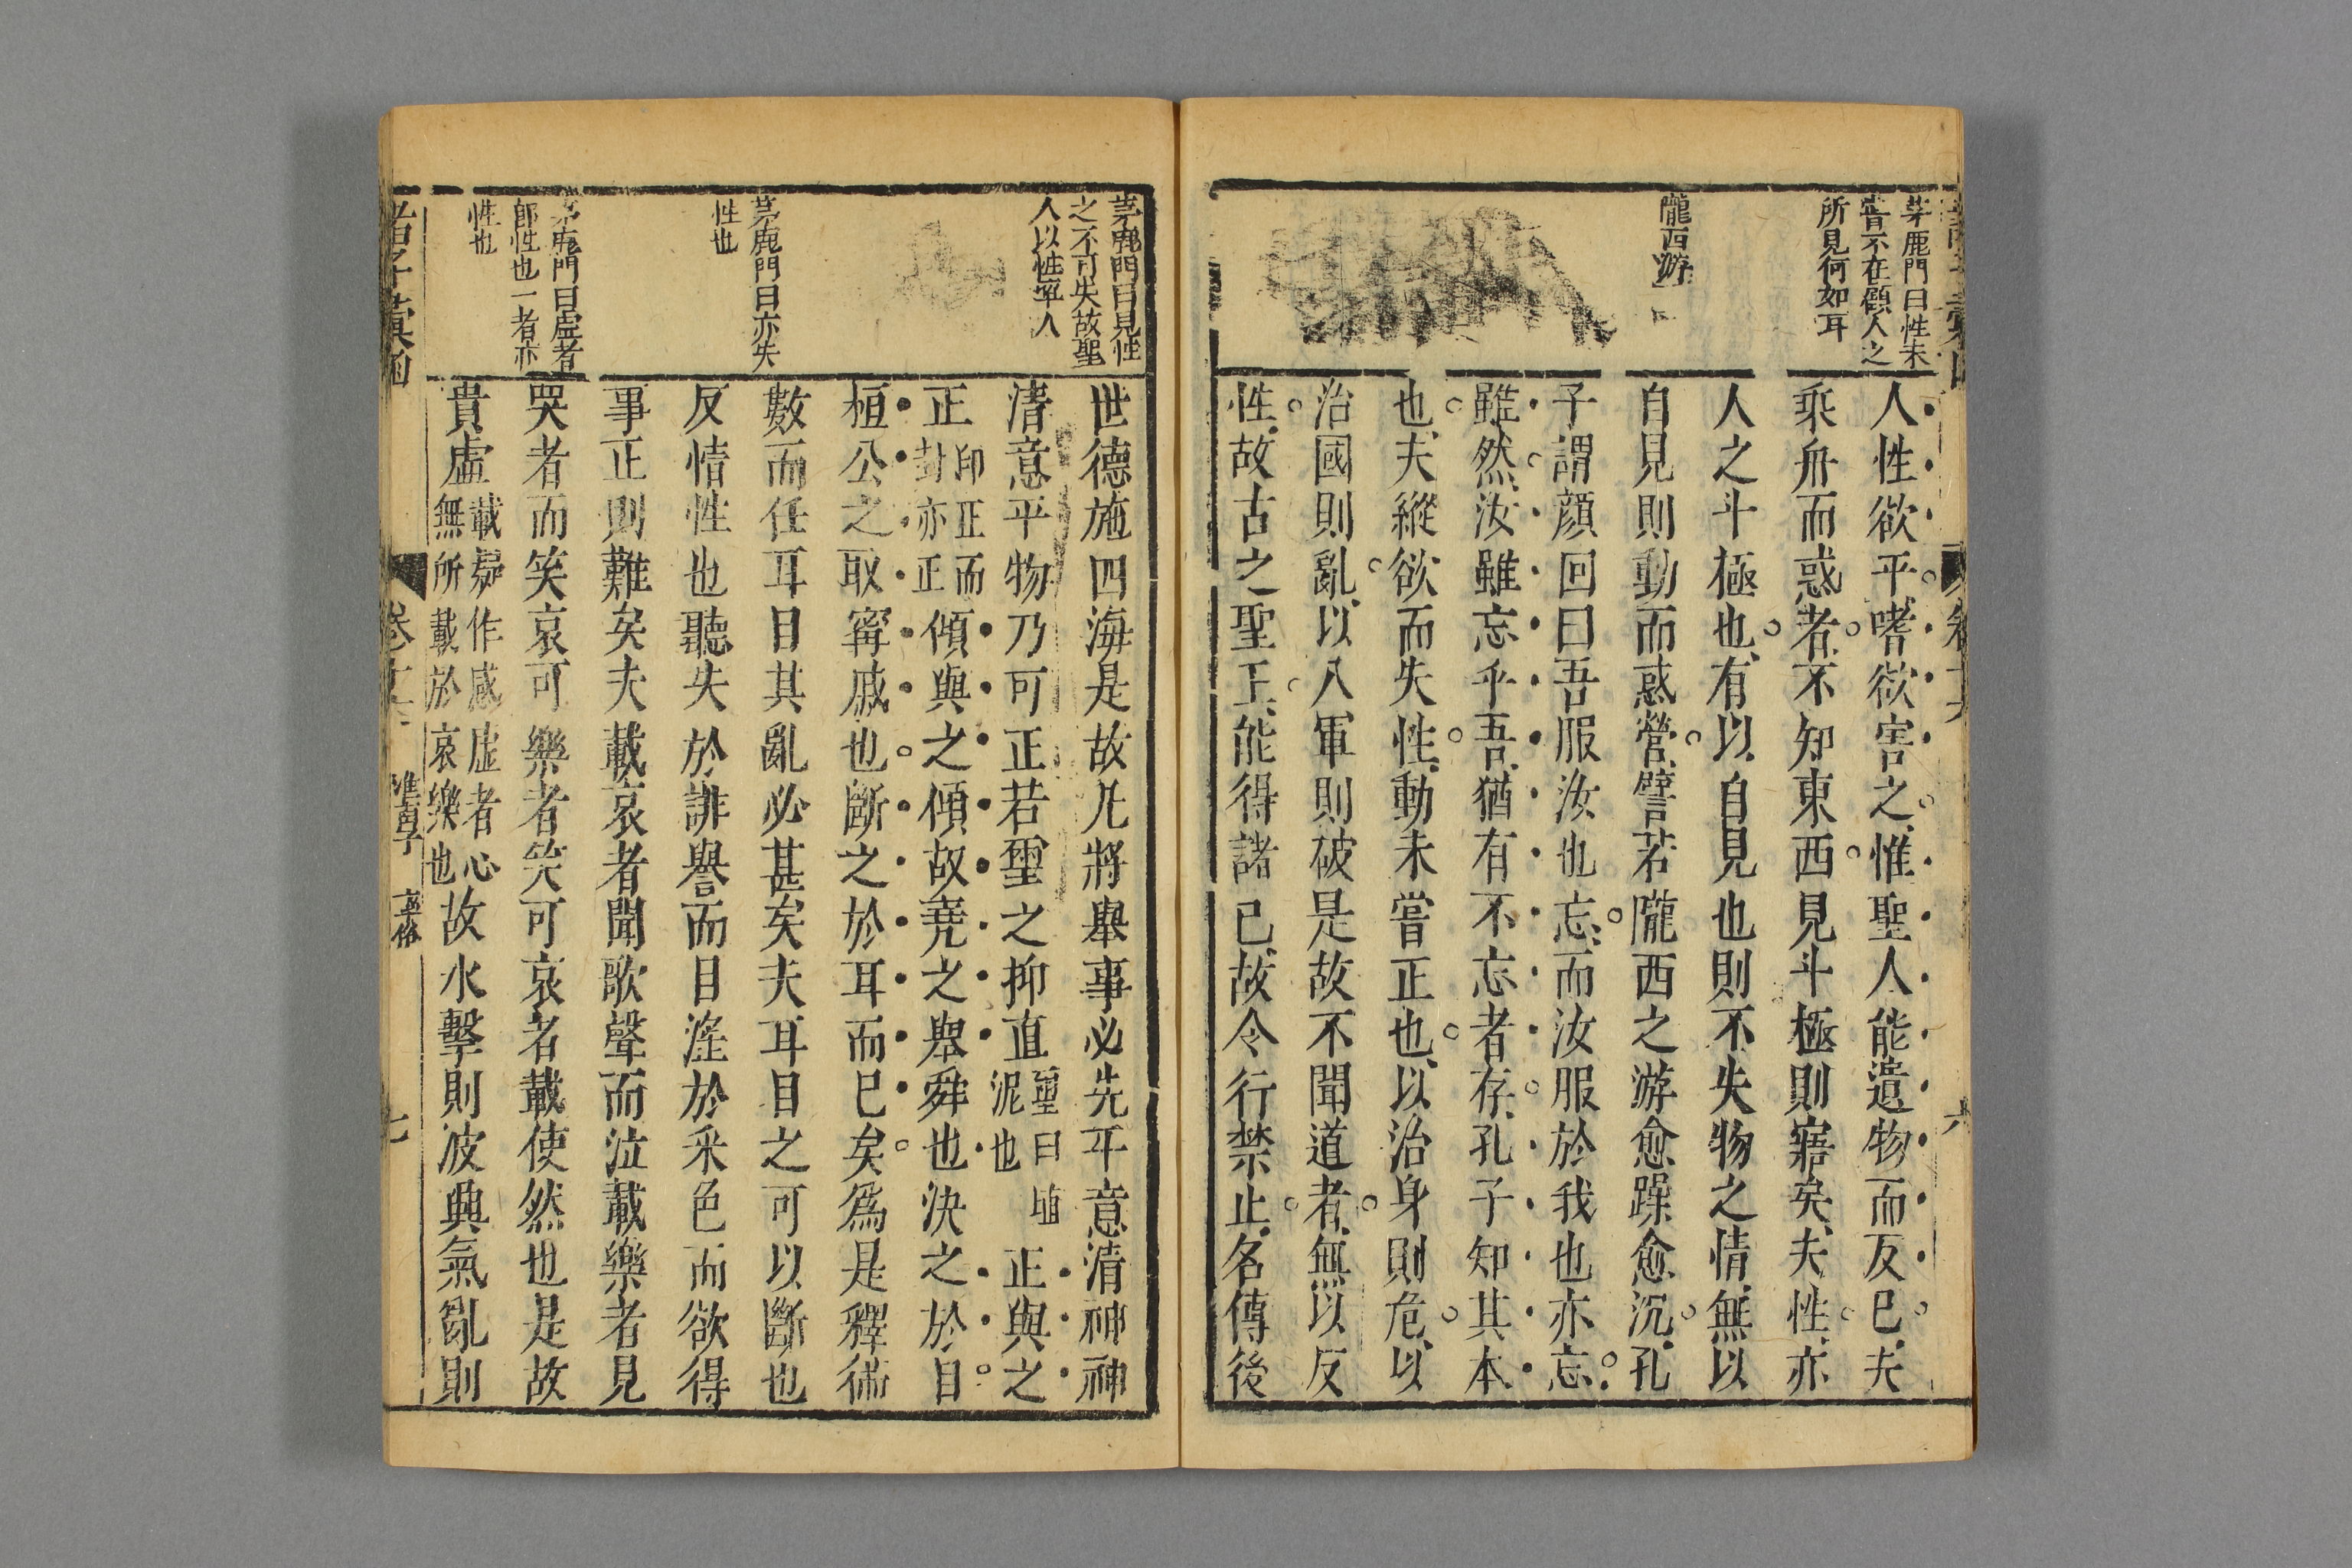 茅鹿門曰性未
甞不在顧人之
所見何如耳
隴西游
人性欲平嗜欲害之惟聖人能遺物而反已夫
乘舟而惑者不知東西見斗極則寤矣夫性亦
人之斗極也有以自見也則不失物之情無以
自見則動而惑營譬若隴西之游愈躁愈沉孔
子謂顏回曰吾服汝也忘而汝服於我也亦忘
雖然汝雖忘乎吾猶有不忘者存孔子知其本
也夫縱欲而失性動未嘗正也以治身則危以
治國則亂以入軍則破是故不聞道者無以反
性故古之聖王能得諸已故令行禁止名傳後
茅鹿門曰見性
之不可失故聖
人以性率人
茅鹿門曰亦失
性也
茅鹿門曰虛者
郎性也一者亦
性也
世德施四海是故凡將舉事必先平意清神神
清意平物乃可正若璽之抑直璽曰埴泥也正與之
正印正而封亦正傾與之傾故堯之舉舜也決之於目
桓公之取甯戚也斷之於耳而已矣爲是釋術
數而任耳目其亂必甚矣夫耳目之可以斷也
反情性也聽失於誹譽而目淫於采色而欲得
事正則難矣夫載哀者聞歌聲而泣載樂者見
哭者而笑哀可樂者笑可哀者載使然也是故
貴虛載㷌作感虛者心無所載於哀樂也故水擊則波興氣亂則
卷十六
淮南子
齊俗
七